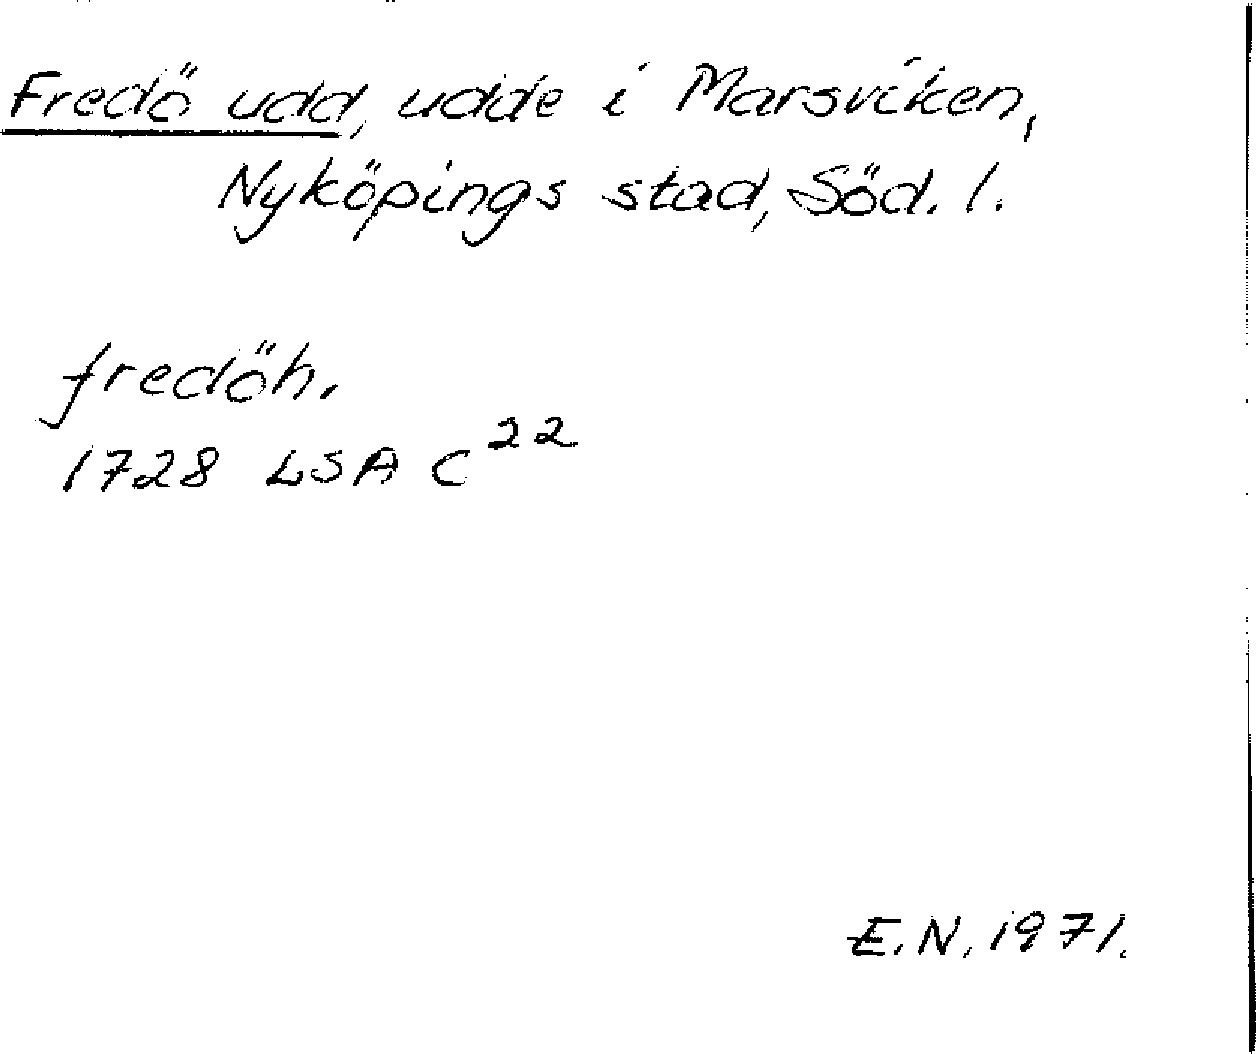 Fredö udd, udde i Marsviken,
Nyköpings stad, Söd. l.
fredöh.
1728 LSA C22
E.N. 1971.